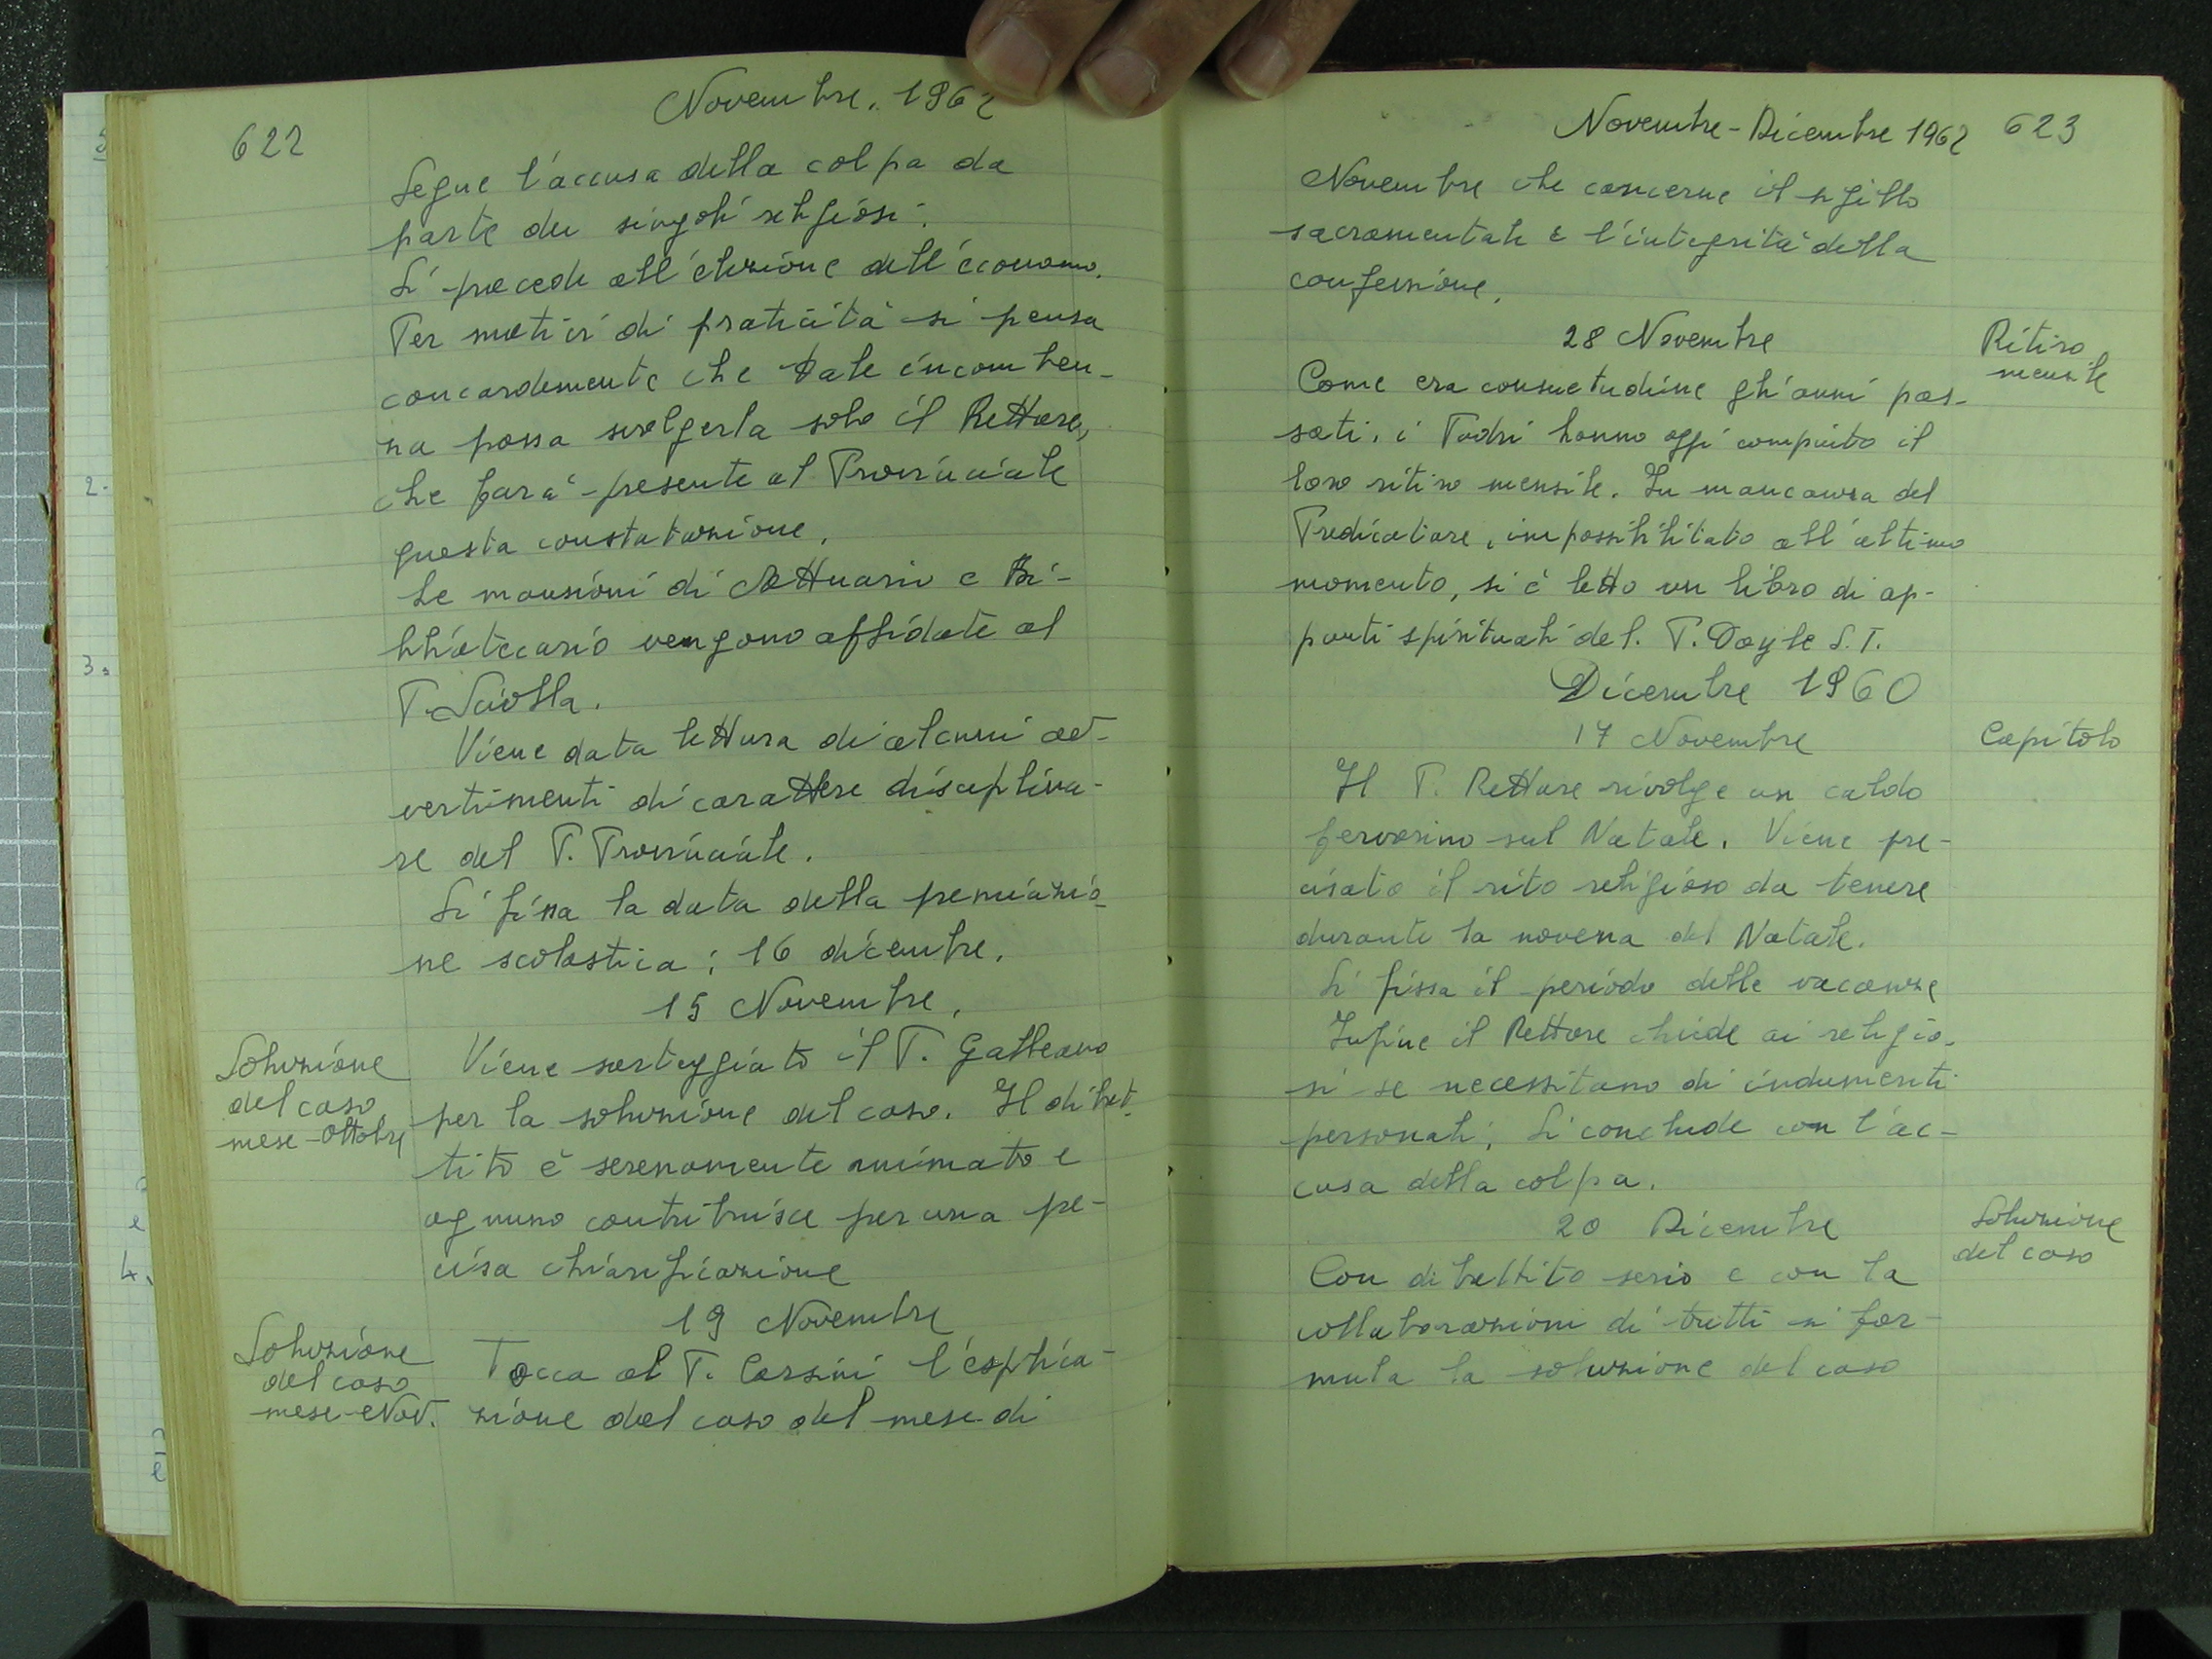 622
Novembre. 1962
Segue l'accusa della colpa da
parte dei singoli religiosi.
Si procede all'elezione dell'economo.
Per motivi di praticità si pensa
concordemente che tale incomben-
za possa svolgerla solo il Rettore,
che farà presente al Provinciale
questa constatazione.
Le mansioni di Attuario e Bi-
bliotecario vengono affidate al
P. Sciolla.
Viene data lettura di alcuni av-
vertimenti di carattere disciplina-
re del P. Provinciale.
Si fissa la data della premiazio-
ne scolastica: 16 dicembre.
15 Novembre.
Soluzione
del caso
mese-Ottobre
Viene sorteggiato il P. Galleano
per la soluzione del caso. Il dibat-
tito è serenamente animato e
ognuno contribuisce per una pre-
cisa chiarificazione
19 Novembre
Soluzione
del caso
mese-Nov.
Tocca al P. Corsini l'esplica-
zione del caso del mese di
Novembre-Dicembre 1962 623
Novembre che concerne il sigillo
sacramentale e l'integrità della
confessione.
28 Novembre
Ritiro
mensile
Come era consuetudine gli anni pas-
sati, i Padri hanno oggi compiuto il
loro ritiro mensile. In mancanza del
Predicatore, impossibilitato all'ultimo
momento, si è letto un libro di ap-
punti spirituali del. P. Doyle S.I.
Dicembre 1960
17 Novembre
Capitolo
Il P. Rettore rivolge un caldo
fervorino sul Natale. Viene pre-
cisato il rito religioso da tenere
durante la novena del Natale.
Si fissa il periodo delle vacanze
Infine il Rettore chiede ai religio-
si se necessitano di indumenti
personali; Si conclude con l'ac-
cusa della colpa.
20 Dicembre
Soluzione
del caso
Con dibattito serio e con la
collaborazioni di tutti si for-
mula la soluzione del caso
2.
3.
4.